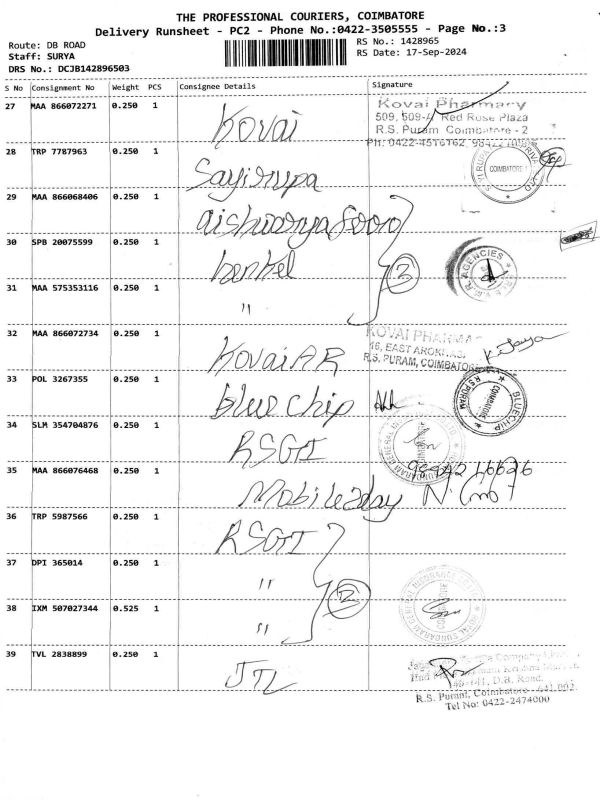 THE PROFESSIONAL COURIERS, COIMBATORE
Delivery Runsheet - PC2 - Phone No.:0422-3505555 - Page No.:3
Route: DB ROAD
Staff: SURYA
DRS No.: DCJB142896503
RS No.: 1428965
RS Date: 17-Sep-2024
S No Consignment No Weight PCS Consignee Details Signature
27 MAA 866072271 0.250 1 Kovai
Kovai Pharmacy
509, 509-A Red Rose Plaza
R.S. Puram Coimbatore - 2
28 TRP 7787963 0.250 1 Sayirupa
COIMBATORE
29 MAA 866068406 0.250 1 aishwarya
30 SPB 20075599 0.250 1 henkel
AGENCIES
31 MAA 575353116 0.250 1 "
32 MAA 866072734 0.250 1 Kovai AR
KOVAI PHARMAC
16, EAST AROKI
R.S. PURAM, COIMBATORE
33 POL 3267355 0.250 1 blue chip
BLUECHIP
R S PURAM
COIMBATORE
34 SLM 354704876 0.250 1 RSGI
35 MAA 866076468 0.250 1 Mobile2day
36 TRP 5987566 0.250 1 RSGI
37 DPI 365014 0.250 1 "
38 IXM 507027344 0.525 1 "
ROYAL SUNDARAM GENERAL INSURANCE
39 TVL 2838899 0.250 1 JTL
D.B. Road,
R.S. Puram, Coimbatore - 641 002.
Tel No: 0422-2474000